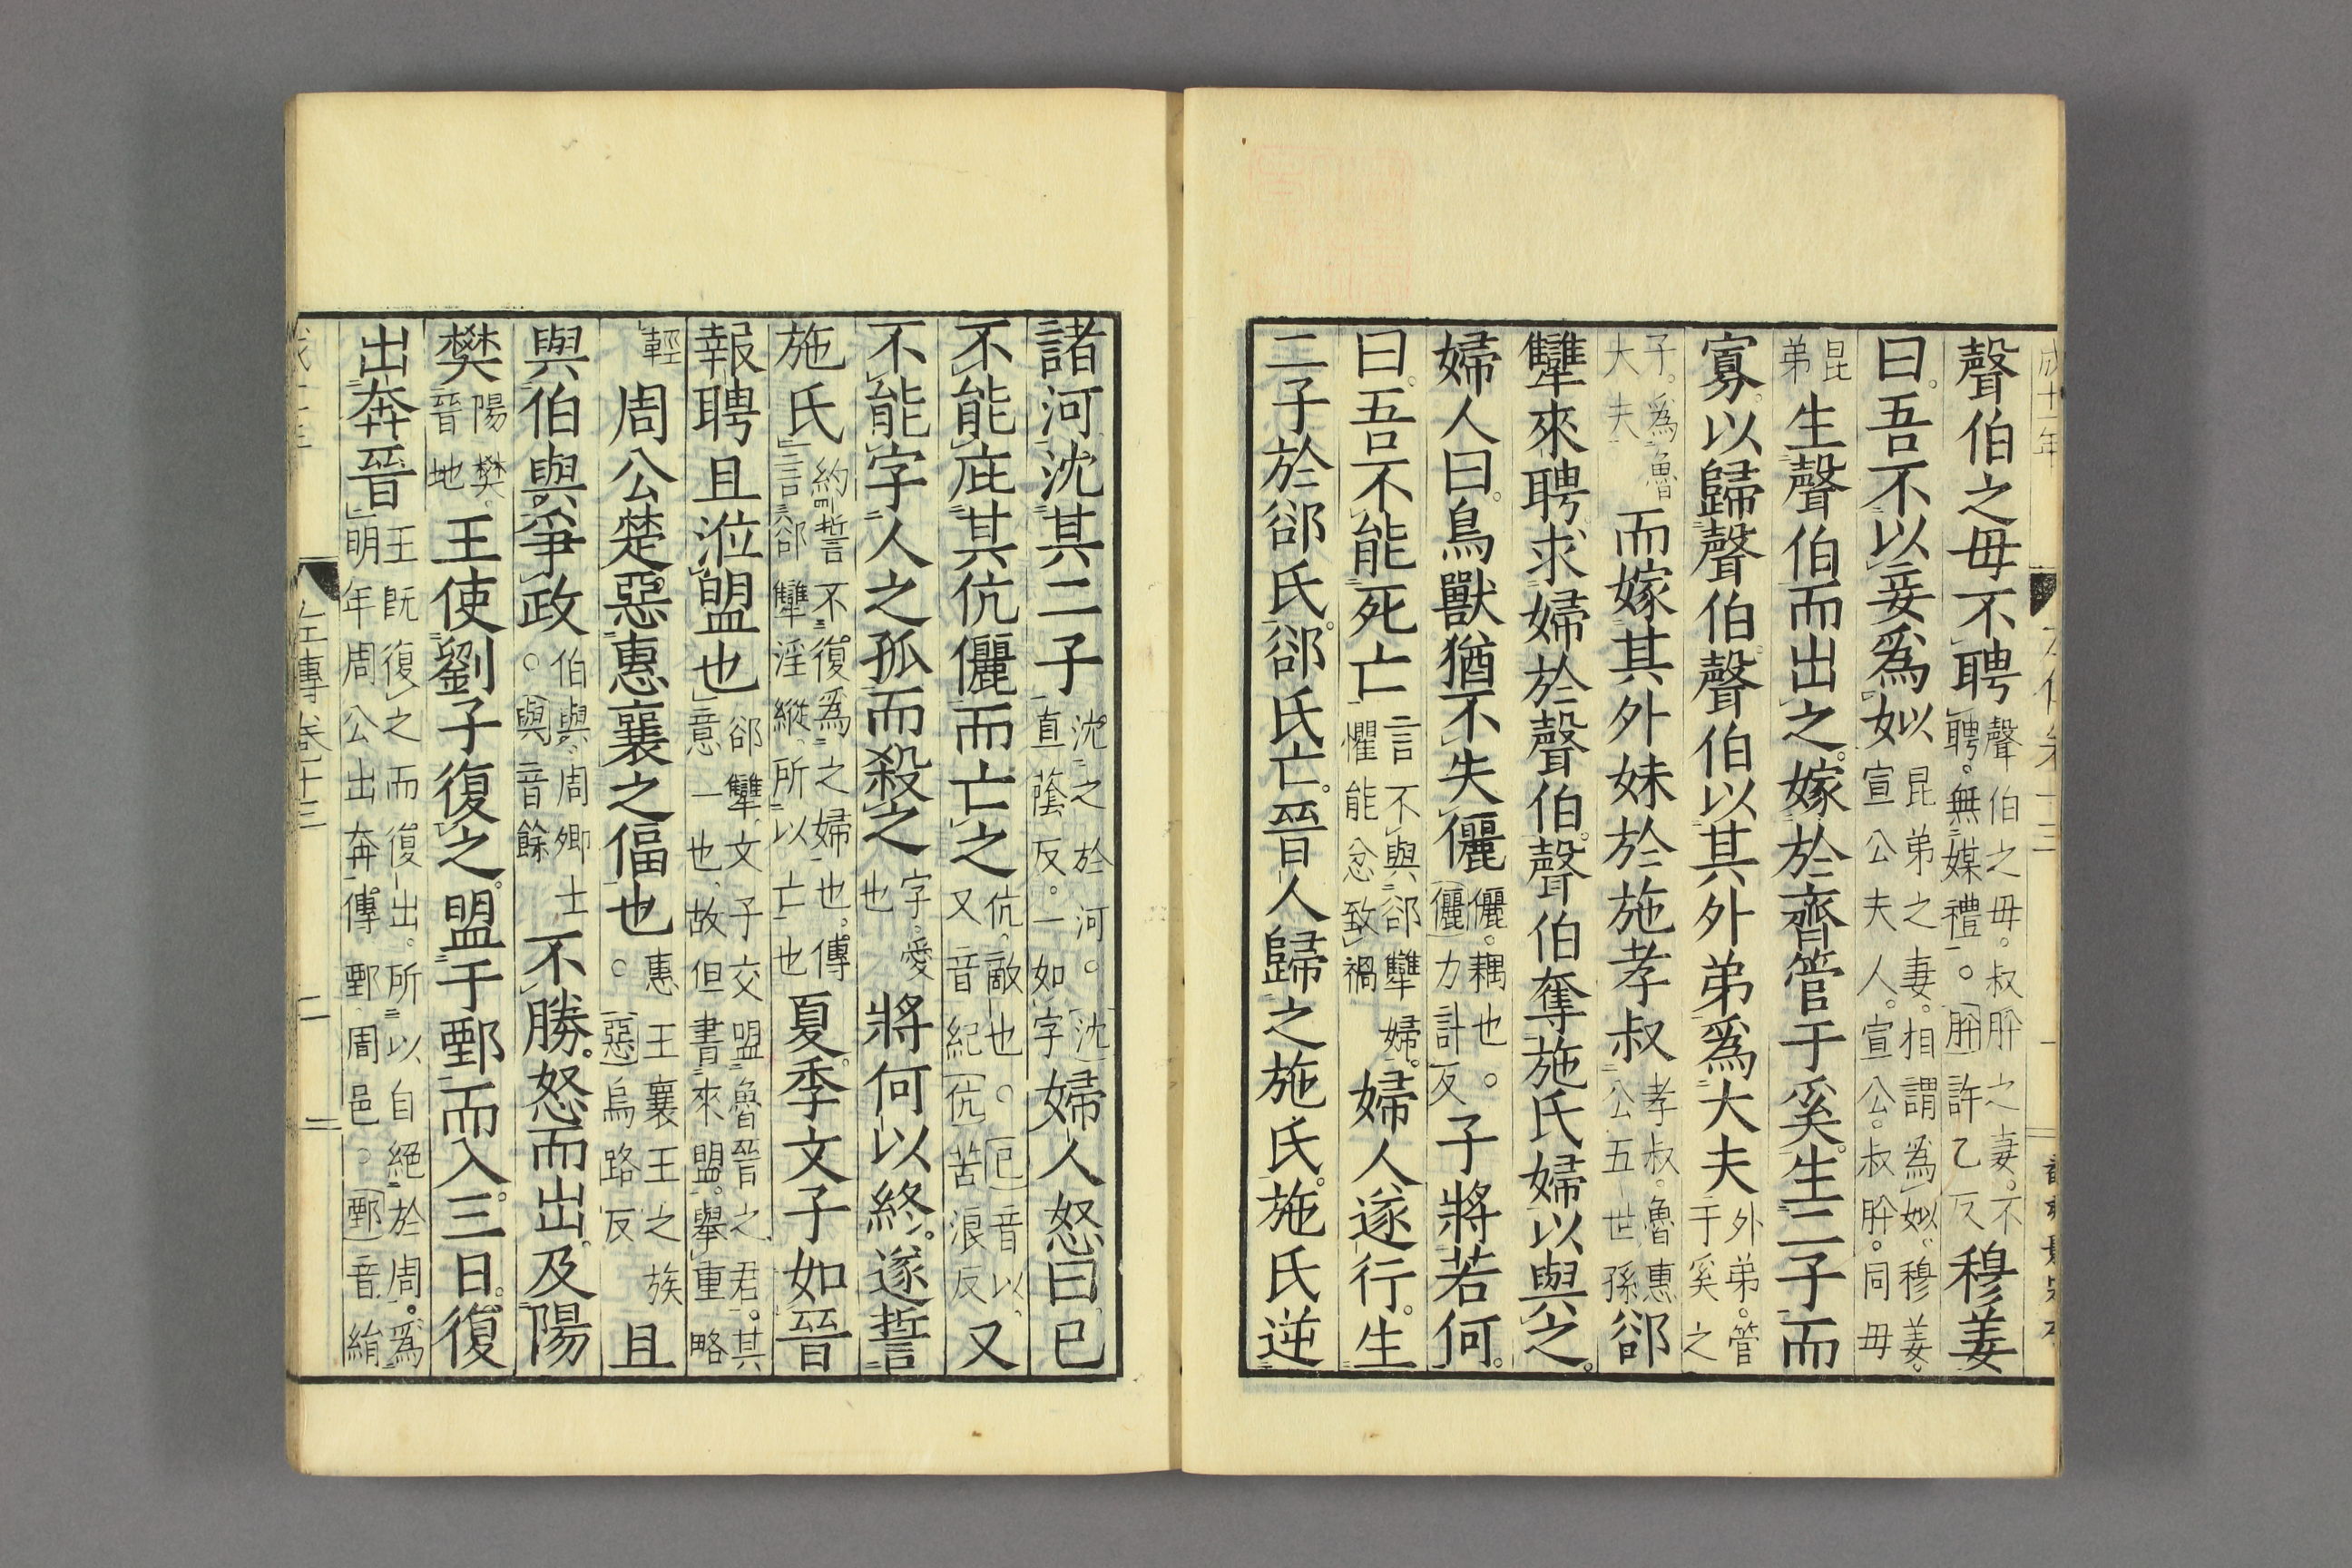 成十一年
聲伯之母不聘聲伯之母。叔肸之妻。不聘。無媒禮。肸許乙反穆姜
曰。吾不以妾爲姒昆弟之妻。相謂爲姒。穆姜。宣公夫人。宣公。叔肸。同母
昆弟生聲伯而出之。嫁於齊管于奚。生二子而
寡。以歸聲伯。聲伯以其外弟爲大夫外弟。管于奚之
子。爲魯大夫而嫁其外妹於施孝叔孝叔。魯惠公五世孫郤
犨來聘。求婦於聲伯。聲伯奪施氏婦以與之。
婦人曰。鳥獸猶不失儷儷。耦也。儷力計反子將若何。
曰。吾不能死亡言不與郤犨婦。懼能忿致禍婦人遂行。生
二子於郤氏。郤氏亡。晉人歸之施氏。施氏逆
諸河。沈其二子沈之於河。沈直蔭反。一如字婦人怒曰。已
不能庇其伉儷而亡之伉。敵也。已音以、又音紀伉苦浪反又
不能字人之孤而殺之字。愛也將何以終。遂誓
施氏約誓不復爲之婦也。傳言郤犨淫縱、所以亡也夏。季文子如晉
報聘且涖盟也郤犨、文子交盟魯晉之君。其意一也、故但書來盟。舉重略
輕周公楚惡惠襄之偪也惠王襄王之族。惡烏路反且
與伯與爭政伯與、周卿士。與音餘不勝。怒而出。及陽
樊陽樊。晉地王使劉子復之。盟于鄄而入。三日。復
出奔晉王旣復之而復出。所以自絕於周。爲明年周公出奔傳鄄周邑。鄄音絹
左傳卷十三
二